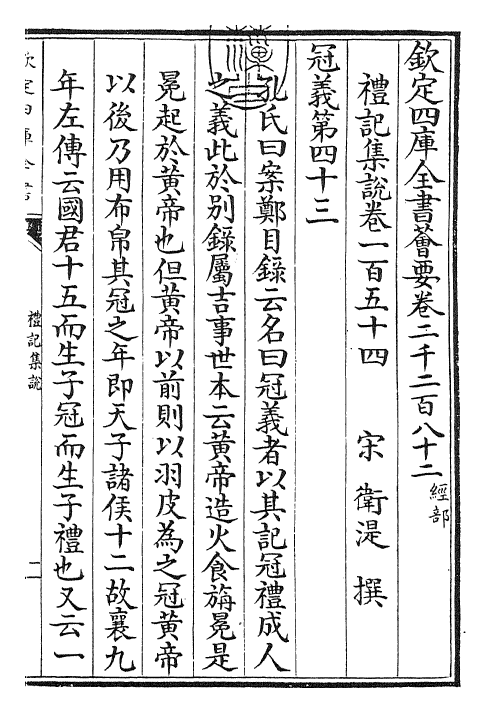 欽定四庫全書薈要卷二千二百八十二 經部
禮記集說卷一百五十四 宋 衛湜 撰
冠義第四十三
孔氏曰案鄭目錄云名曰冠義者以其記冠禮成人
之義此於別錄屬吉事世本云黃帝造火食旃冕是
冕起於黃帝也但黃帝以前則以羽皮為之冠黃帝
以後乃用布帛其冠之年即天子諸侯十二故襄九
年左傳云國君十五而生子冠而生子禮也又云一
欽定四庫全書
禮記集說